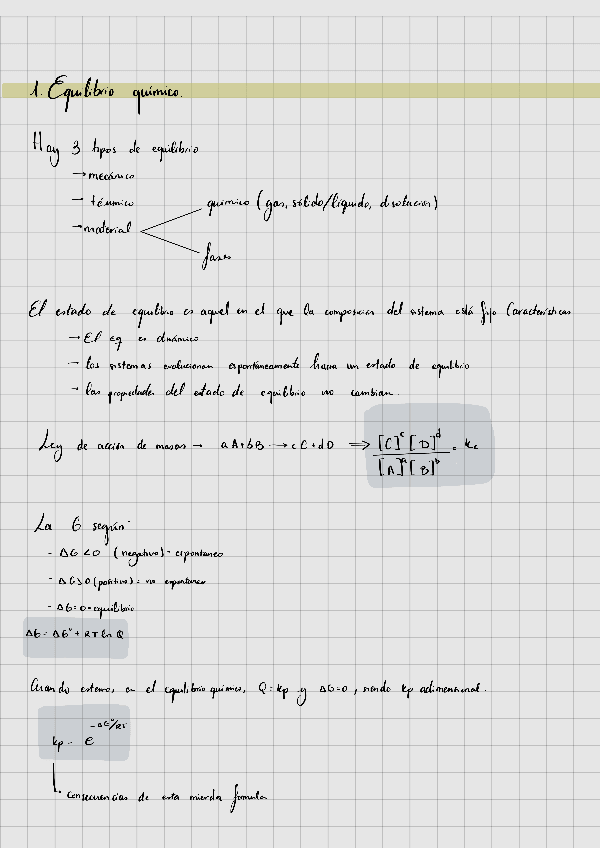 1. Equilibrio químico.
Hay 3 tipos de equilibrio
→ mecánico
→ térmico
→ material
químico (gas, sólido/líquido, disolución)
fases
El estado de equilibrio es aquel en el que la composición del sistema está fijo Características
→ El eq es dinámico
→ los sistemas evolucionan espontáneamente hacia un estado de equilibrio
→ las propiedades del estado de equilibrio no cambian.
Ley de acción de masas → aA+bB → cC+dD ⇒ [C]^c [D]^d / [A]^a [B]^b = Kc
La G según:
- ΔG<0 (negativo) = espontáneo
- ΔG>0 (positivo) = no espontáneo
- ΔG=0 = equilibrio
ΔG = ΔG° + RT ln Q
Cuando estemos en el equilibrio químico, Q=kp y ΔG=0, siendo kp adimensional.
kp = e^-ΔG°/RT
Consecuencias de esta mierda formula